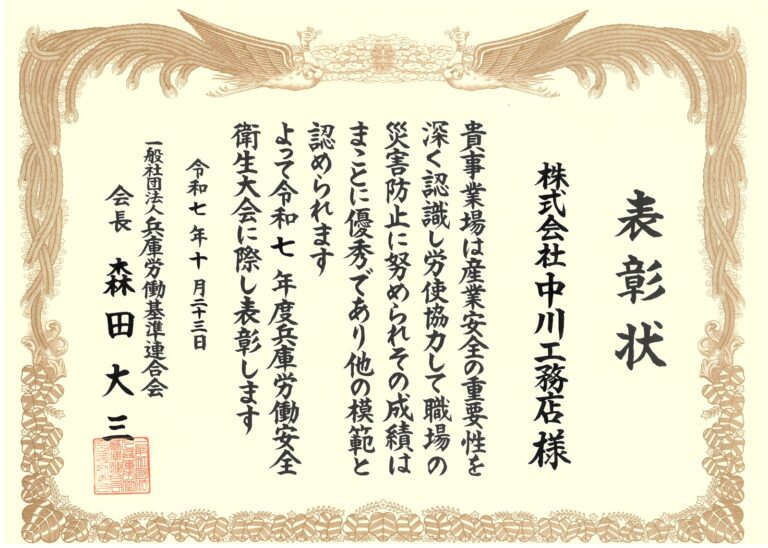 表彰状
株式会社中川工務店様
貴事業場は産業安全の重要性を
深く認識し労使協力して職場の
災害防止に努められその成績は
まことに優秀であり他の模範と
認められます
よって令和七年度兵庫労働安全
衛生大会に際し表彰します
令和七年十月二十三日
一般社団法人兵庫労働基準連合会
会長 森田大三